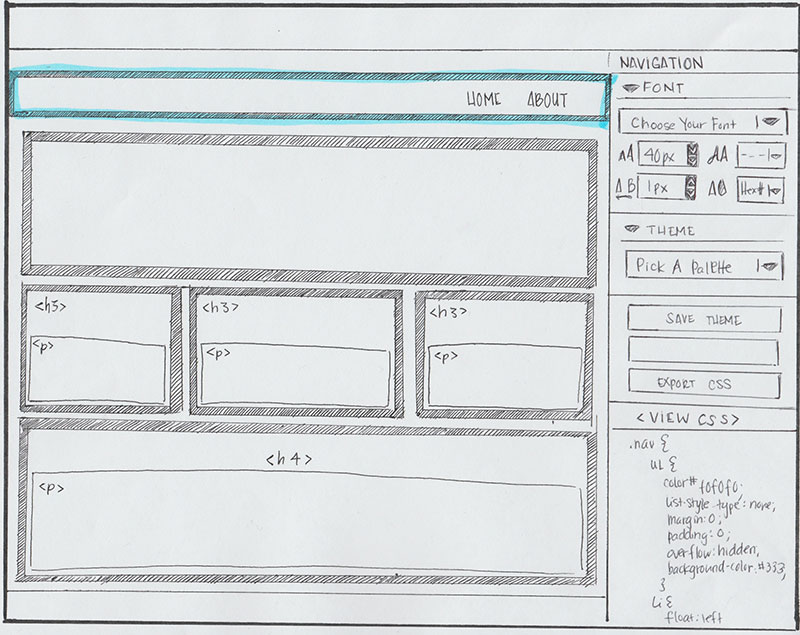 HOME ABOUT
<h3>
<p>
<h3>
<p>
<h3>
<p>
<h4>
<p>
NAVIGATION
FONT
Choose Your Font
aA 40px AA ---
AB 1px Hex#
THEME
Pick A Palette
SAVE THEME
EXPORT CSS
<VIEW CSS>
.nav {
UL {
color# f0f0f0;
list-style-type: none;
margin: 0;
padding: 0;
overflow: hidden,
background-color: #333;
}
Li {
float: left